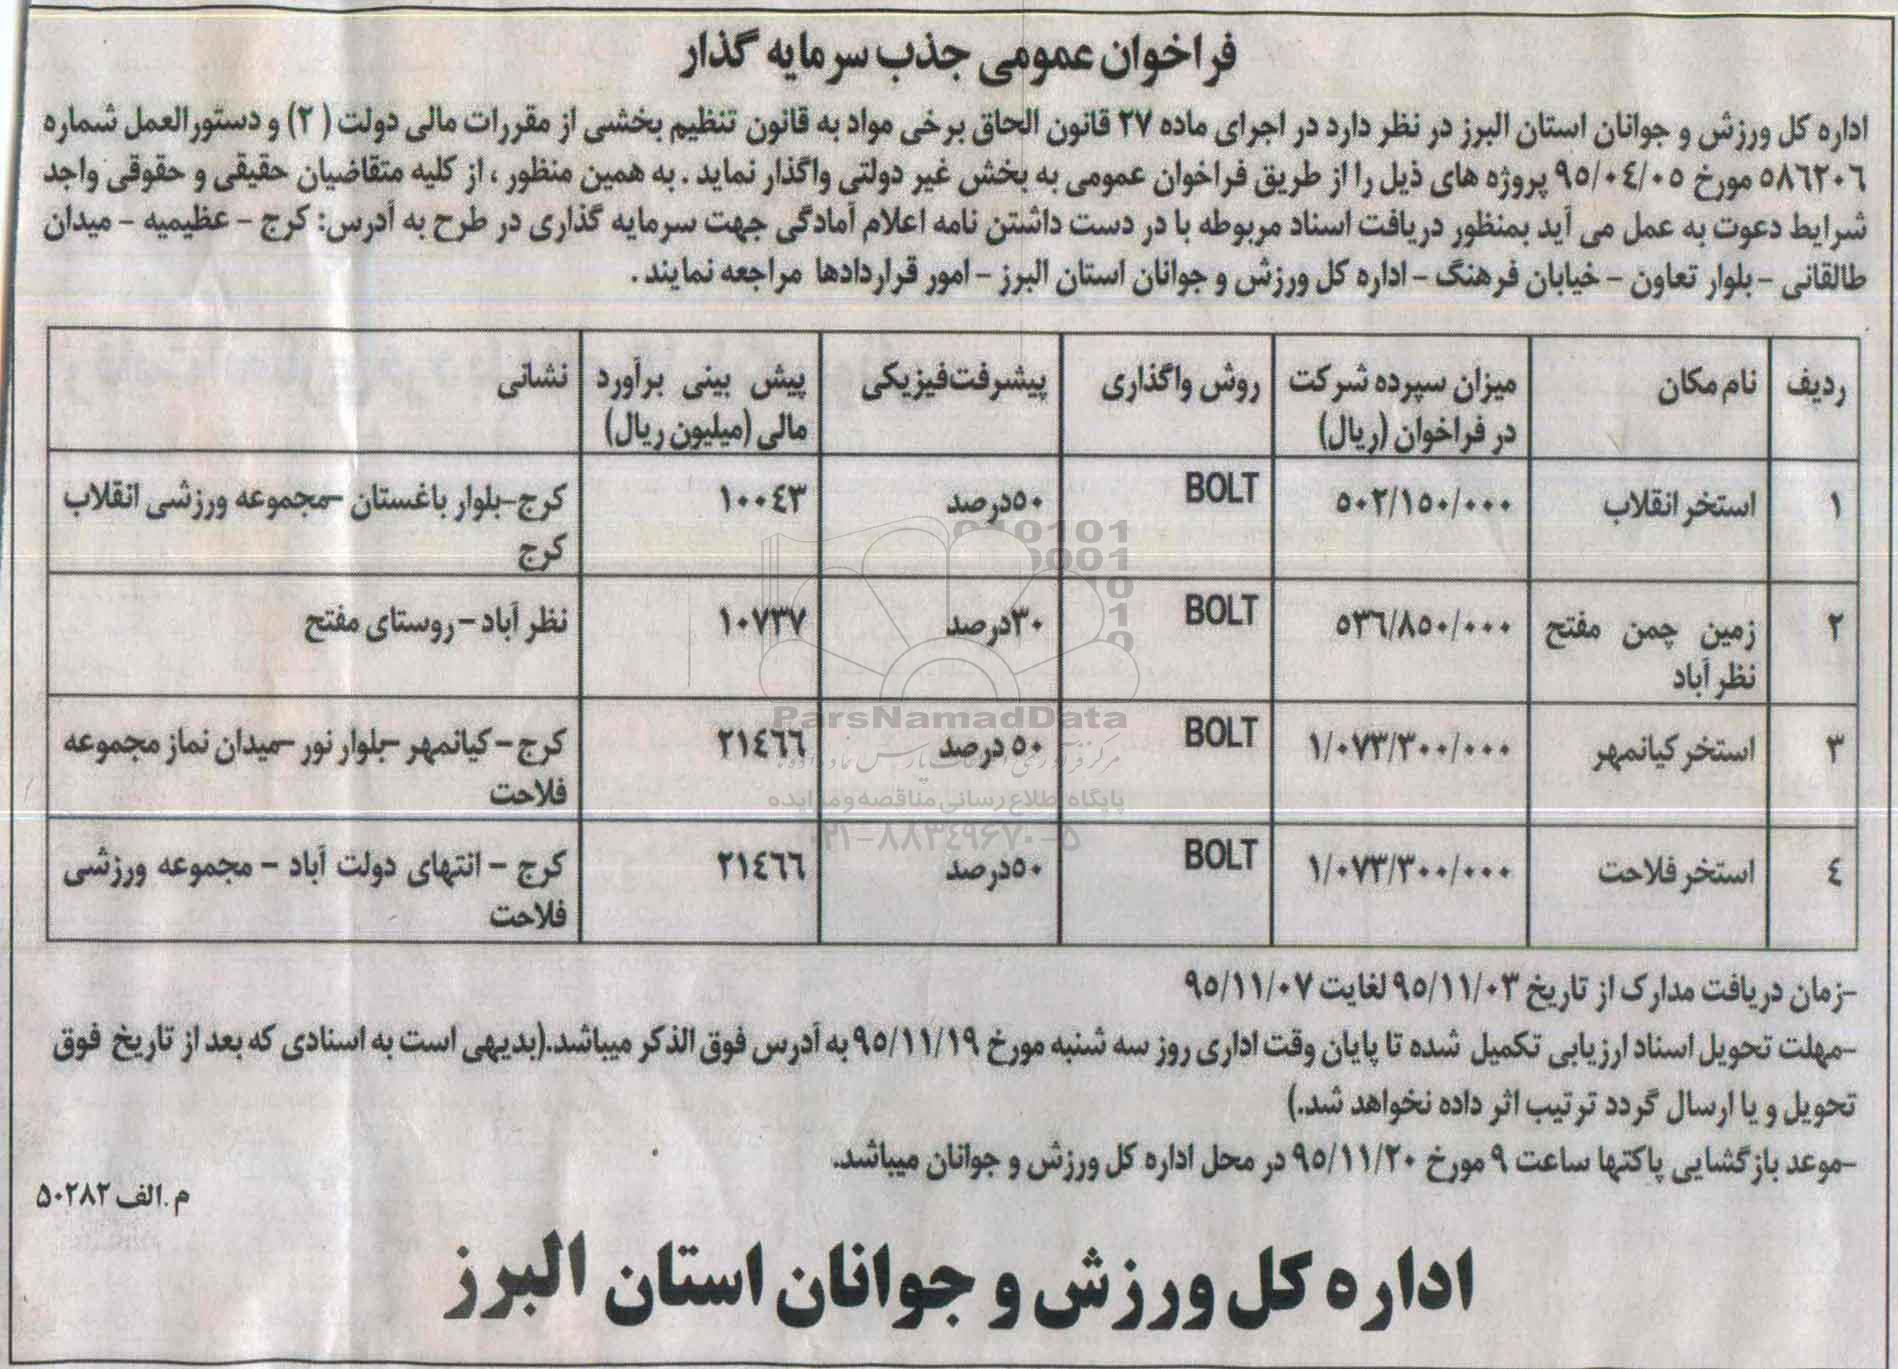 فراخوان عمومی جذب سرمایه گذار
اداره کل ورزش و جوانان استان البرز در نظر دارد در اجرای ماده ۲۷ قانون الحاق برخی مواد به قانون تنظیم بخشی از مقررات مالی دولت ( ۲) و دستورالعمل شماره
۵۸۶۲۰۶ مورخ ۹۵/۰۴/۰۵ پروژه های ذیل را از طریق فراخوان عمومی به بخش غیر دولتی واگذار نماید . به همین منظور ، از کلیه متقاضیان حقیقی و حقوقی واجد
شرایط دعوت به عمل می آید بمنظور دریافت اسناد مربوطه با در دست داشتن نامه اعلام آمادگی جهت سرمایه گذاری در طرح به آدرس: کرج – عظیمیه – میدان
طالقانی – بلوار تعاون – خیابان فرهنگ – اداره کل ورزش و جوانان استان البرز – امور قراردادها مراجعه نمایند .
ردیف نام مکان میزان سپرده شرکت در فراخوان (ریال) روش واگذاری پیشرفت فیزیکی پیش بینی برآورد مالی (میلیون ریال) نشانی
۱ استخر انقلاب ۵۰۲/۱۵۰/۰۰۰ BOLT ۵۰درصد ۱۰۰۴۳ کرج–بلوار باغستان –مجموعه ورزشی انقلاب کرج
۲ زمین چمن مفتح نظر آباد ۵۳۶/۸۵۰/۰۰۰ BOLT ۳۰درصد ۱۰۷۳۷ نظر آباد – روستای مفتح
۳ استخر کیانمهر ۱/۰۷۳/۳۰۰/۰۰۰ BOLT ۵۰ درصد ۲۱۴۶۶ کرج – کیانمهر –بلوار نور –میدان نماز مجموعه فلاحت
۴ استخر فلاحت ۱/۰۷۳/۳۰۰/۰۰۰ BOLT ۵۰درصد ۲۱۴۶۶ کرج – انتهای دولت آباد – مجموعه ورزشی فلاحت
ParsNamadData
پایگاه اطلاع رسانی مناقصه و مزایده
۰۲۱–۸۸۳۴۹۶۷۰–۵
–زمان دریافت مدارک از تاریخ ۹۵/۱۱/۰۳ لغایت ۹۵/۱۱/۰۷
–مهلت تحویل اسناد ارزیابی تکمیل شده تا پایان وقت اداری روز سه شنبه مورخ ۹۵/۱۱/۱۹ به آدرس فوق الذکر میباشد.(بدیهی است به اسنادی که بعد از تاریخ فوق
تحویل و یا ارسال گردد ترتیب اثر داده نخواهد شد.)
–موعد بازگشایی پاکتها ساعت ۹ مورخ ۹۵/۱۱/۲۰ در محل اداره کل ورزش و جوانان میباشد.
م.الف ۵۰۲۸۲
اداره کل ورزش و جوانان استان البرز